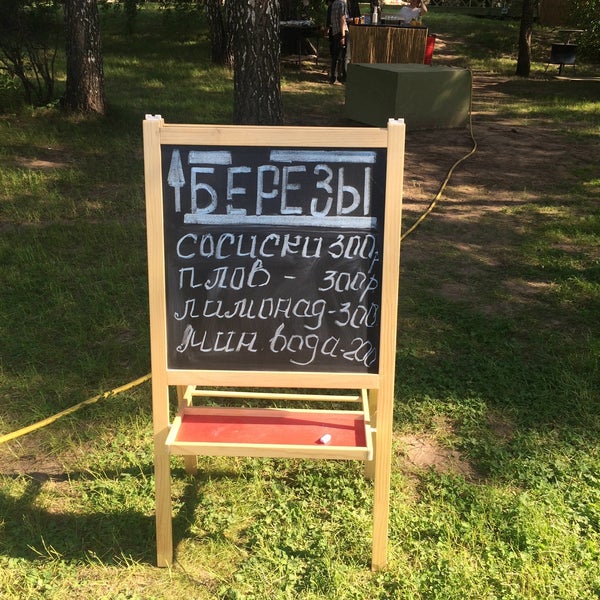 БЕРЕЗЫ
СОСИСКИ 300р
ПЛОВ - 300р
ЛИМОНАД-300
МИН. ВОДА-200